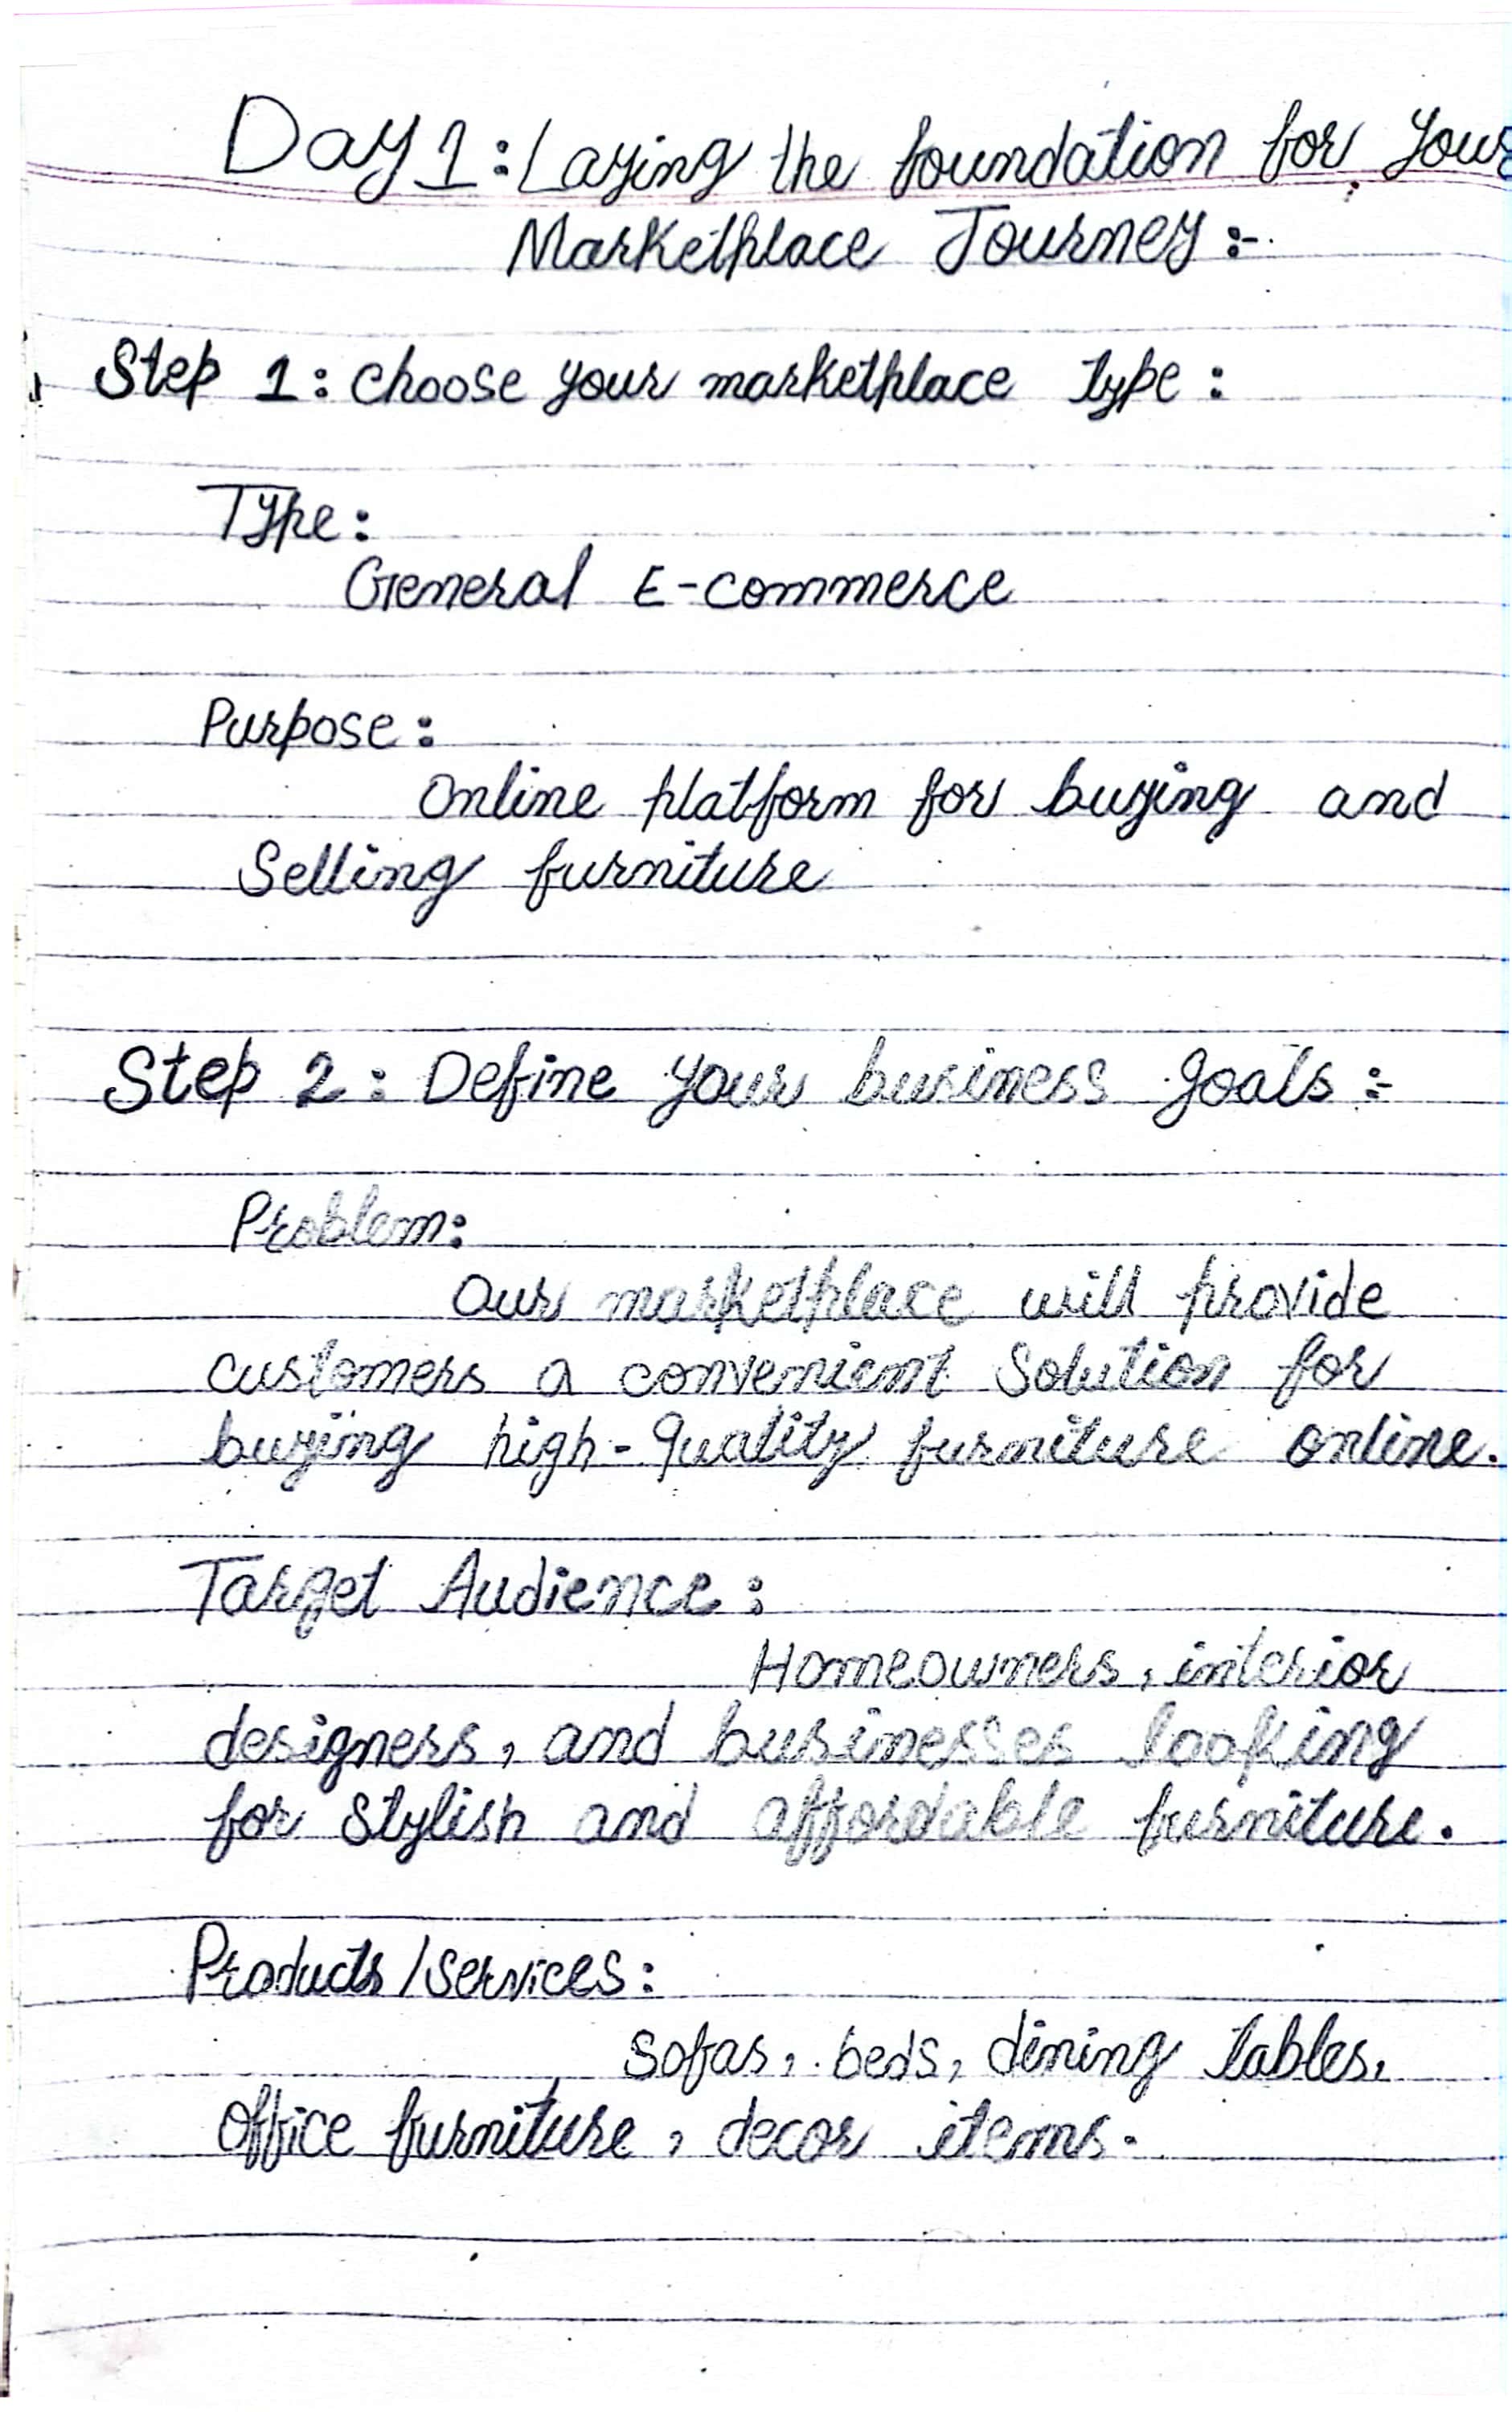 Day 1: Laying the foundation for your
Marketplace Journey :-
Step 1: choose your marketplace type :
Type :
General E-commerce
Purpose :
Online platform for buying and
Selling furniture
Step 2 : Define your business goals :-
Problem:
Our marketplace will provide
customers a convenient Solution for
buying high-quality furniture online.
Target Audience :
Homeowners, interior
designers, and businesses looking
for Stylish and affordable furniture.
Products/services :
Sofas, beds, dining tables,
office furniture, decor items.